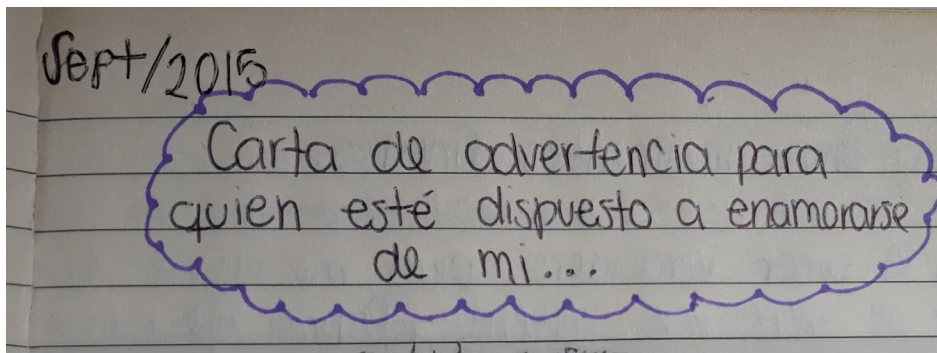 Sept/2015
Carta de advertencia para
quien esté dispuesto a enamorarse
de mi...